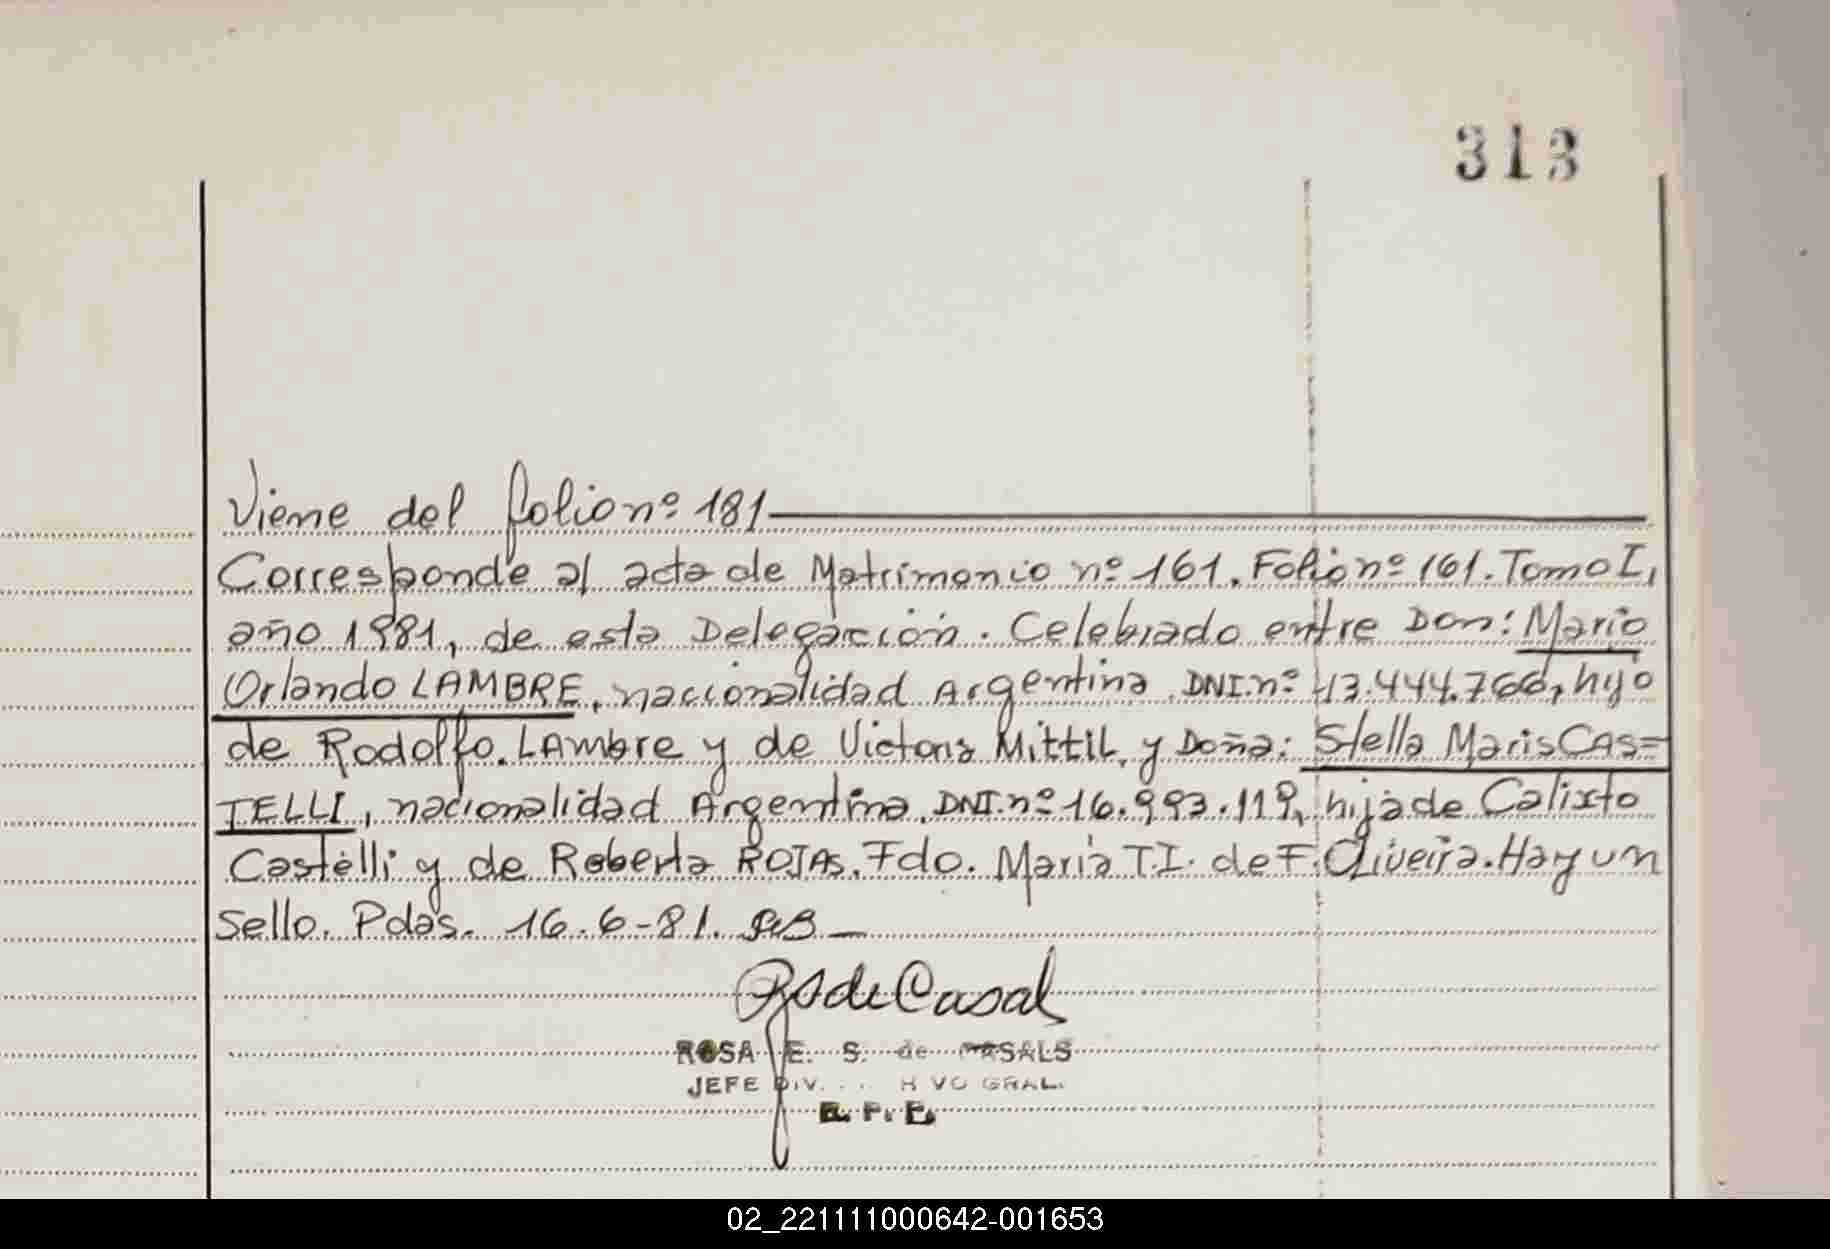 313
Viene del folio nº 181
Corresponde al acta de Matrimonio nº 161. Folio nº 161. Tomo I,
año 1981, de esta Delegación. Celebrado entre Don: Mario
Orlando LAMBRE, nacionalidad Argentina DNI.nº 13.444.766, hijo
de Rodolfo. LAmbre y de Victoria Mittil, y Doña: Stella Maris CAS=
TELLI, nacionalidad Argentina, DNI.nº 16.993.119, hija de Calixto
Castelli y de Roberta ROJAS. Fdo. María T.I. de F. Oliveira. Hay un
Sello. Pdas. 16.6-81.
de Casal
ROSA E. S. de CASALS
JEFE DIV. GRAL.
02_221111000642-001653